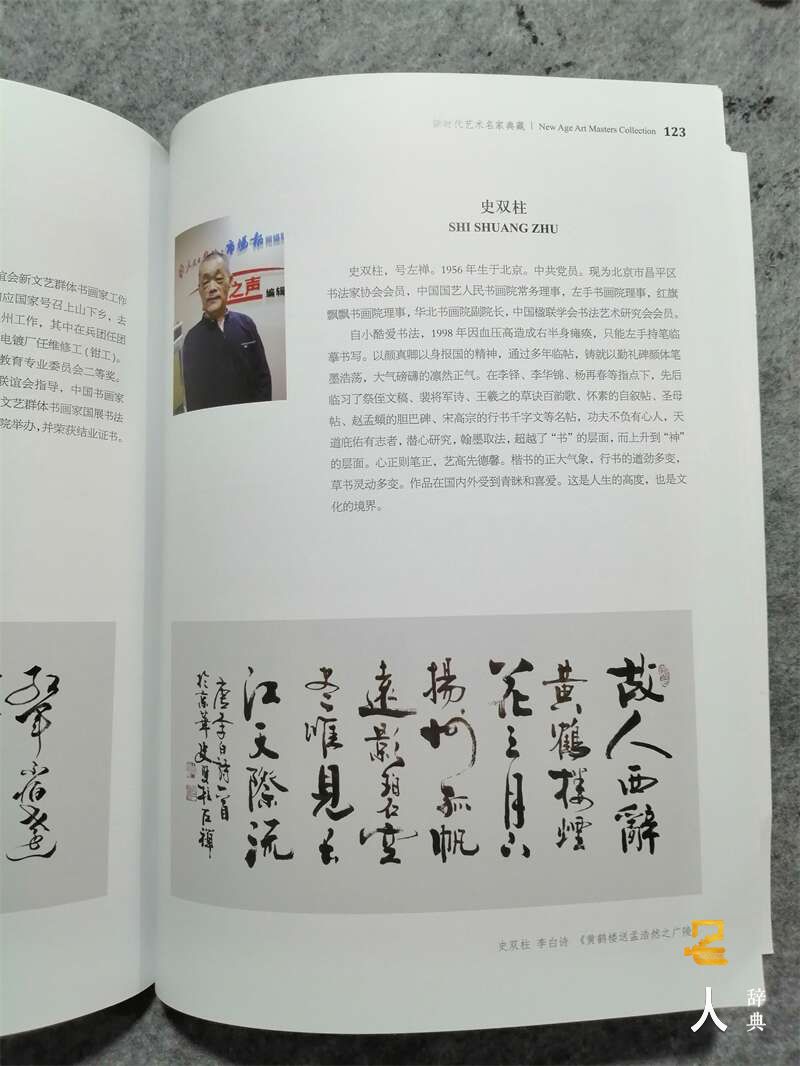 谊会新文艺群体书画家工作
应国家号召上山下乡，去
州工作，其中在兵团任团
电镀厂任维修工（钳工）。
教育专业委员会二等奖。
联谊会指导，中国书画家
文艺群体书画家国展书法
院举办，并荣获结业证书。
新时代艺术名家典藏 | New Age Art Masters Collection 123
之声 编辑
史双柱
SHI SHUANG ZHU
史双柱，号左禅。1956 年生于北京。中共党员。现为北京市昌平区
书法家协会会员，中国国艺人民书画院常务理事，左手书画院理事，红旗
飘飘书画院理事，华北书画院副院长，中国楹联学会书法艺术研究会会员。
自小酷爱书法，1998 年因血压高造成右半身瘫痪，只能左手持笔临
摹书写。以颜真卿以身报国的精神，通过多年临帖，铸就以勤礼碑颜体笔
墨浩荡，大气磅礴的凛然正气。在李铎、李华锦、杨再春等指点下，先后
临习了祭侄文稿、裴将军诗、王羲之的草诀百韵歌、怀素的自叙帖、圣母
帖、赵孟頫的胆巴碑、宋高宗的行书千字文等名帖，功夫不负有心人，天
道庇佑有志者，潜心研究，翰墨取法，超越了“书”的层面，而上升到“神”
的层面。心正则笔正，艺高先德馨。楷书的正大气象，行书的遒劲多变，
草书灵动多变。作品在国内外受到青睐和喜爱。这是人生的高度，也是文
化的境界。
故人西辭
黄鶴楼煙
花三月下
揚州孤帆
遠影碧空
尽唯見长
江天際流
唐李白詩一首
於京華史双柱左禪
史双柱 李白诗 《黄鹤楼送孟浩然之广陵
名
人
辞典